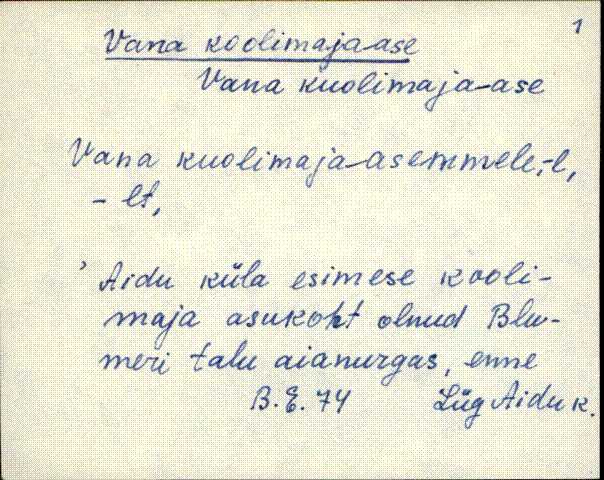 1
Vana koolimaja-ase
Vana kuolimaja-ase
Vana kuolimaja-asemmele,-l,
- lt,
' Aidu küla esimese kooli-
maja asukoht olnud Blu-
meri talu aianurgas, enne
B. E. 74 Lüg Aidu k.